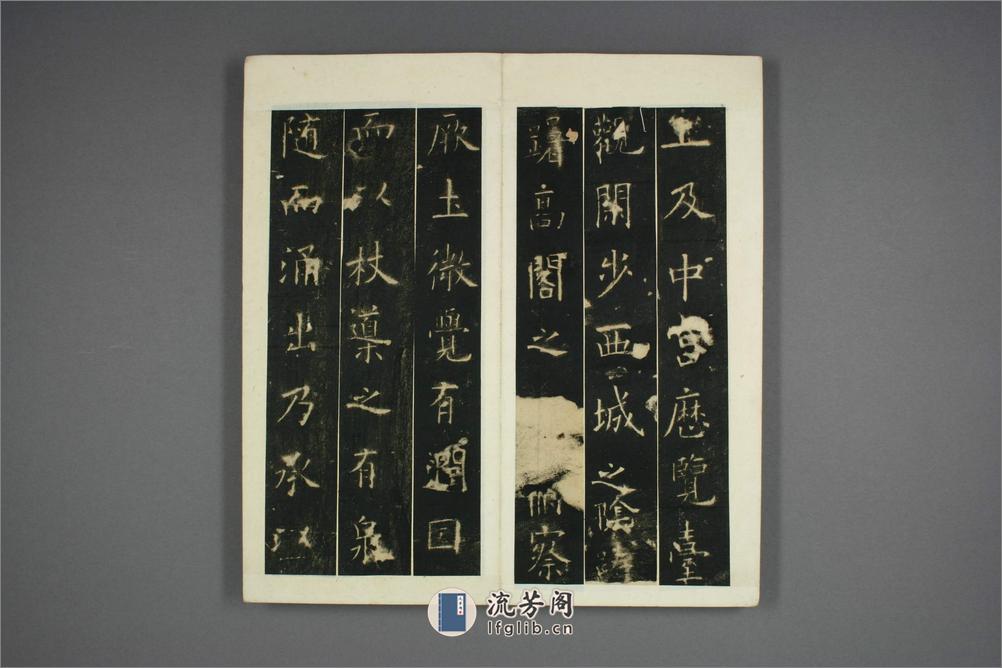 上及中宫歷覽臺
觀閑步西城之陰躊
躇高閣之俯察
厥土微覺有潤因
而以杖導之有泉
随而涌出乃承以
流芳阁
lfglib.cn